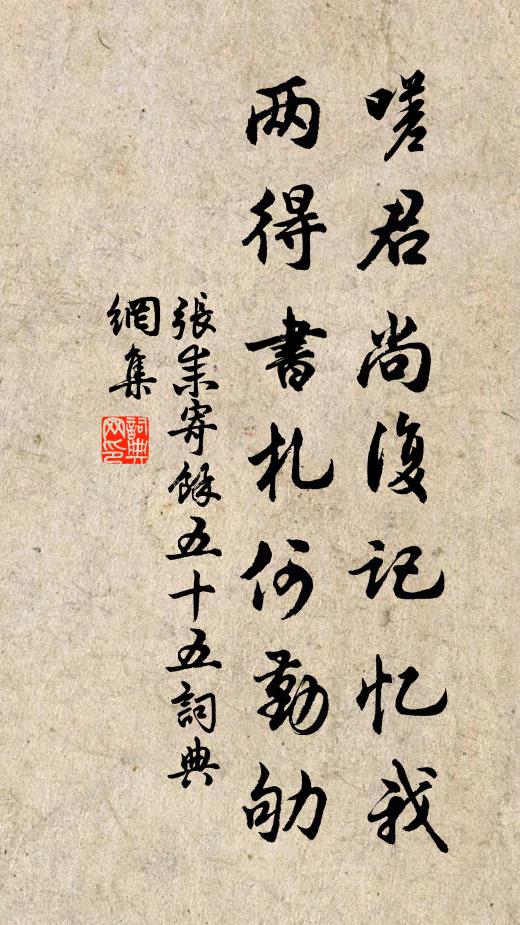 嗟君尚復记忆我
两得書札何勤劬
張耒寄餘五十五詞典
網集
詞典
网印